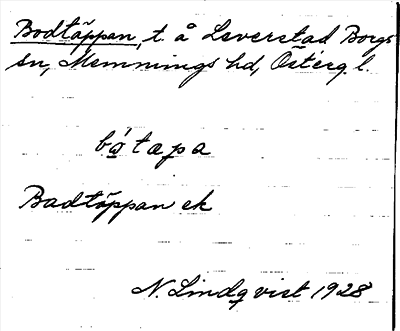 Bodtäppan, t. å Leverstad Borgs
sn, Memmings hd, Österg. l.
bo̲´tæpa
Badtäppan ek
N. Lindqvist 1928